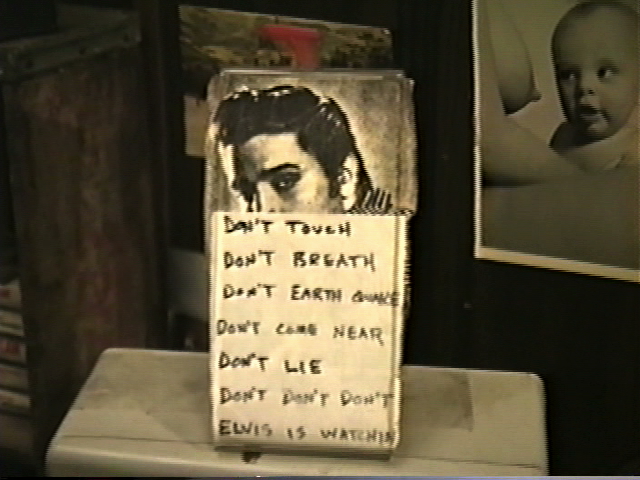 DON'T TOUCH
DON'T BREATH
DON'T EARTH QUAKE
DON'T COME NEAR
DON'T LIE
DON'T DON'T DON'T
ELVIS IS WATCHIN